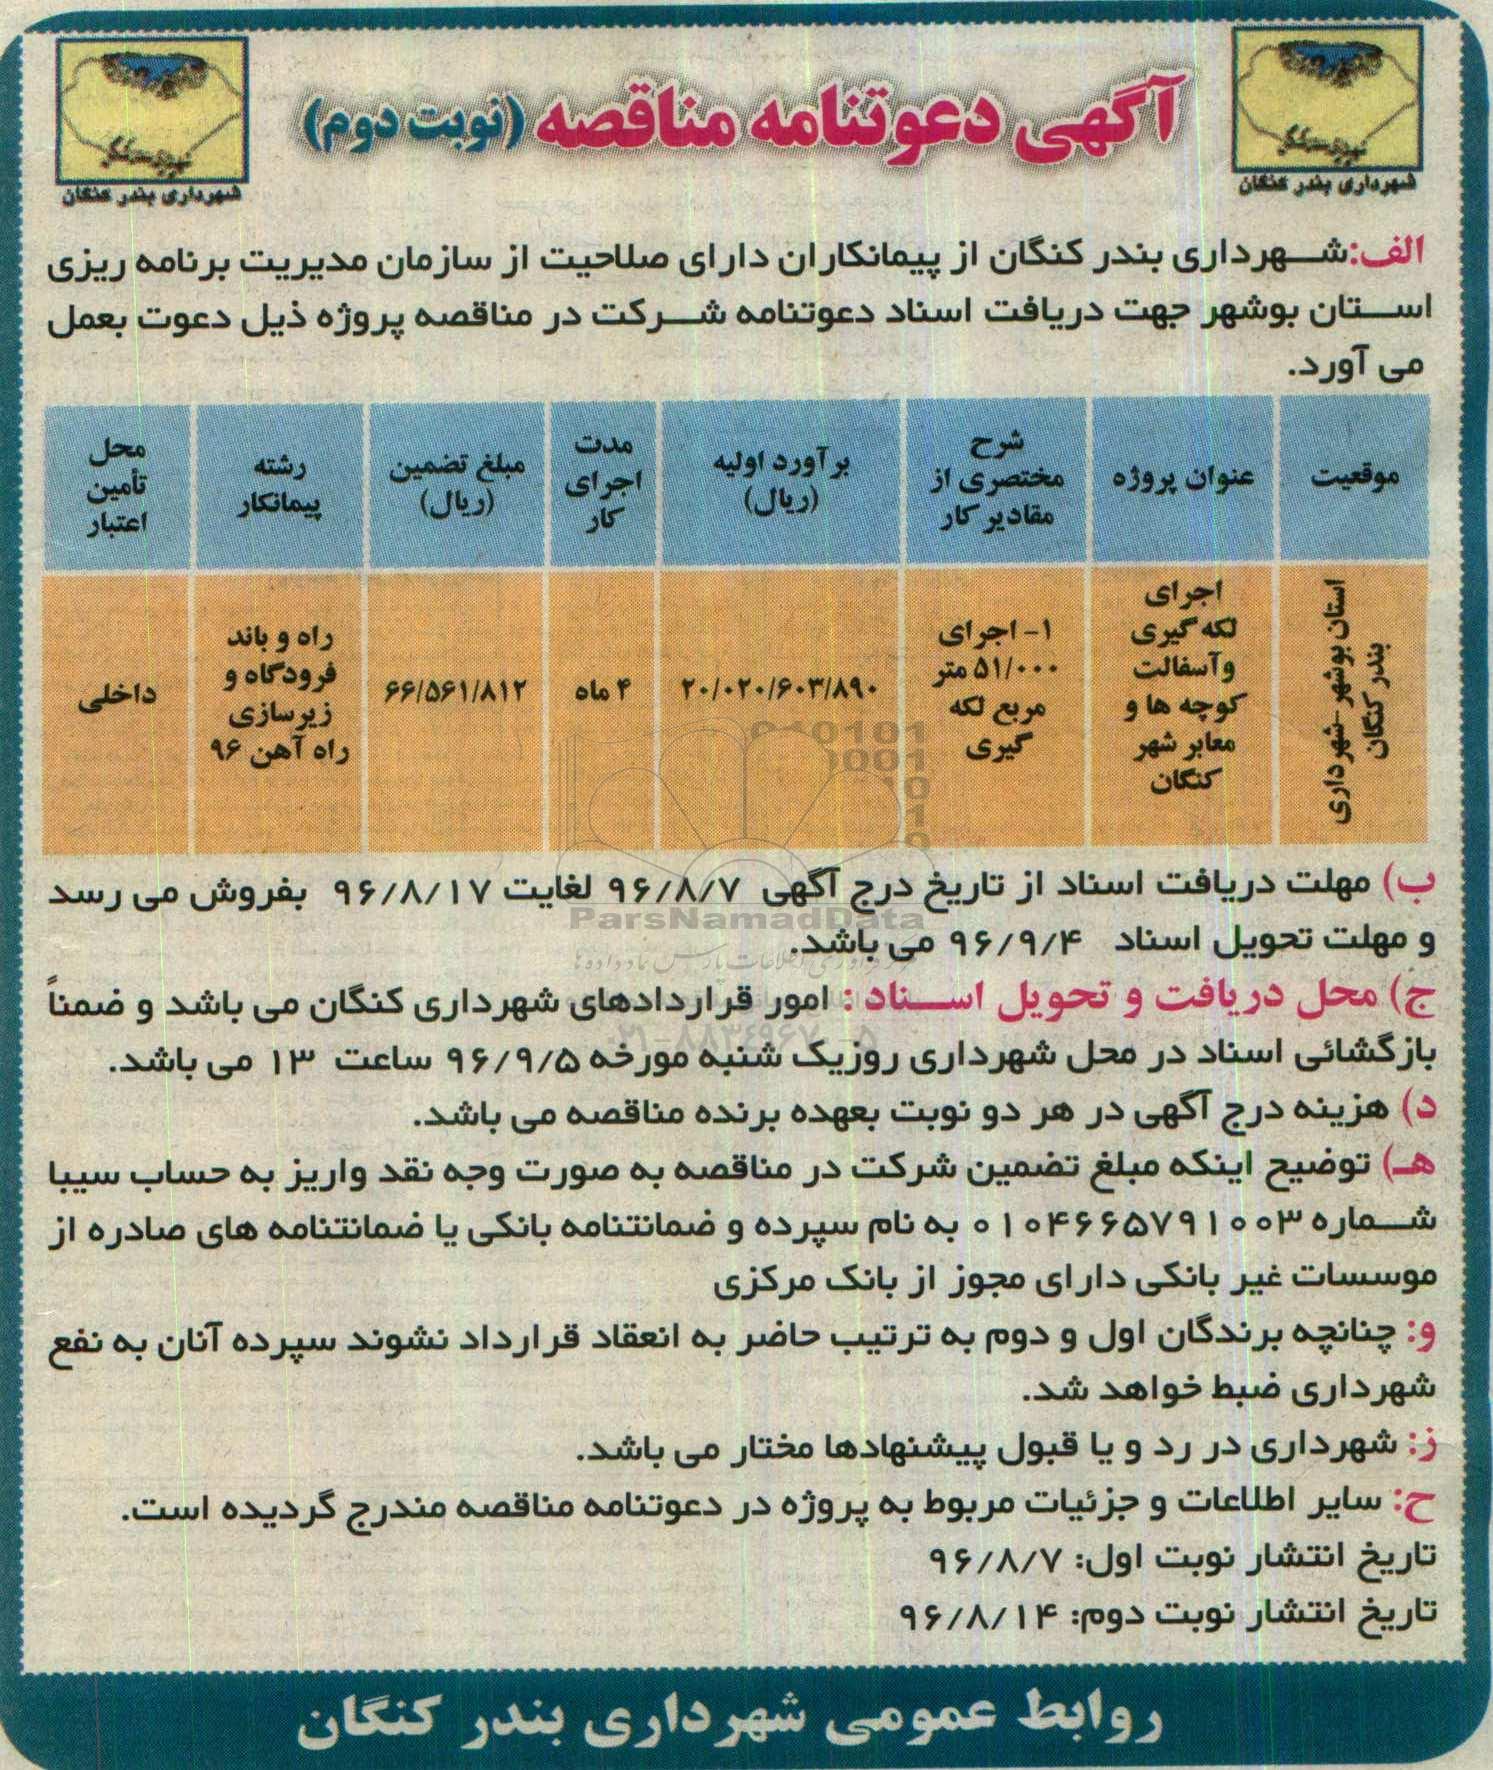 آگهی دعوتنامه مناقصه (نوبت دوم)
شهرداری بندر کنگان
شهرداری بندر کنگان
الف:شهرداری بندر کنگان از پیمانکاران دارای صلاحیت از سازمان مدیریت برنامه ریزی
استان بوشهر جهت دریافت اسناد دعوتنامه شرکت در مناقصه پروژه ذیل دعوت بعمل
می آورد.
موقعیت
عنوان پروژه
شرح
مختصری از
مقادیر کار
برآورد اولیه
(ریال)
مدت
اجرای
کار
مبلغ تضمین
(ریال)
رشته
پیمانکار
محل
تأمین
اعتبار
استان بوشهر-شهرداری
بندر کنگان
اجرای
لکه گیری
وآسفالت
کوچه ها و
معابر شهر
کنگان
۱- اجرای
۵۱/۰۰۰ متر
مربع لکه
گیری
۲۰/۰۲۰/۶۰۳/۸۹۰
۴ ماه
۶۶/۵۶۱/۸۱۲
راه و باند
فرودگاه و
زیرسازی
راه آهن ۹۶
داخلی
ب) مهلت دریافت اسناد از تاریخ درج آگهی ۹۶/۸/۷ لغایت ۹۶/۸/۱۷ بفروش می رسد
و مهلت تحویل اسناد ۹۶/۹/۴ می باشد.
ParsNamadData
ج) محل دریافت و تحویل اسناد : امور قراردادهای شهرداری کنگان می باشد و ضمناً
بازگشائی اسناد در محل شهرداری روزیک شنبه مورخه ۹۶/۹/۵ ساعت ۱۳ می باشد.
د) هزینه درج آگهی در هر دو نوبت بعهده برنده مناقصه می باشد.
هـ) توضیح اینکه مبلغ تضمین شرکت در مناقصه به صورت وجه نقد واریز به حساب سیبا
شماره ۰۱۰۴۶۶۵۷۹۱۰۰۳ به نام سپرده و ضمانتنامه بانکی یا ضمانتنامه های صادره از
موسسات غیر بانکی دارای مجوز از بانک مرکزی
و: چنانچه برندگان اول و دوم به ترتیب حاضر به انعقاد قرارداد نشوند سپرده آنان به نفع
شهرداری ضبط خواهد شد.
ز: شهرداری در رد و یا قبول پیشنهادها مختار می باشد.
ح: سایر اطلاعات و جزئیات مربوط به پروژه در دعوتنامه مناقصه مندرج گردیده است.
تاریخ انتشار نوبت اول: ۹۶/۸/۷
تاریخ انتشار نوبت دوم: ۹۶/۸/۱۴
روابط عمومی شهرداری بندر کنگان